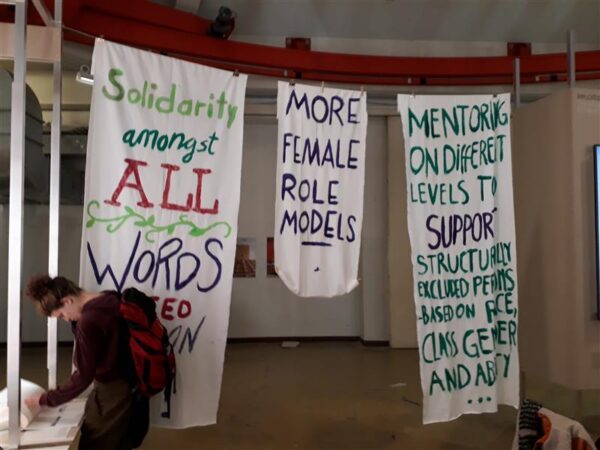 Solidarity
amongst
ALL
WORDS
MORE
FEMALE
ROLE
MODELS
MENTORING
ON DIFFERENT
LEVELS TO
SUPPORT
STRUCTURALLY
EXCLUDED PERSONS
-BASED ON RACE,
CLASS GENDER
AND ABILITY
...